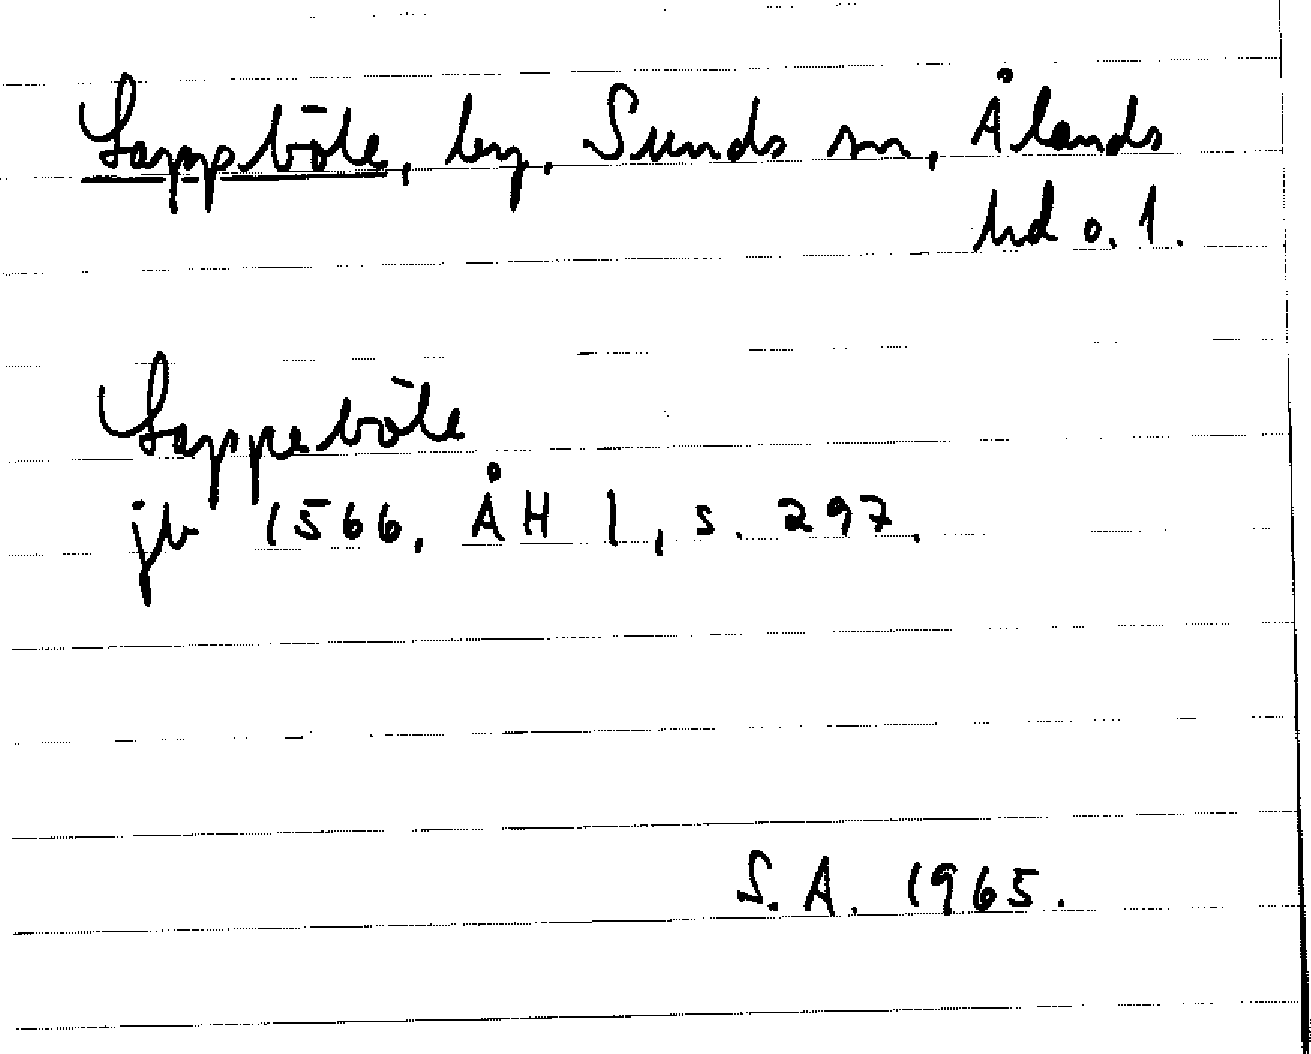 Lappböle, by, Sunds sn, Ålands
hd o. l.
Lappeböle
jb 1566. ÅH I, s. 297.
S.A. 1965.